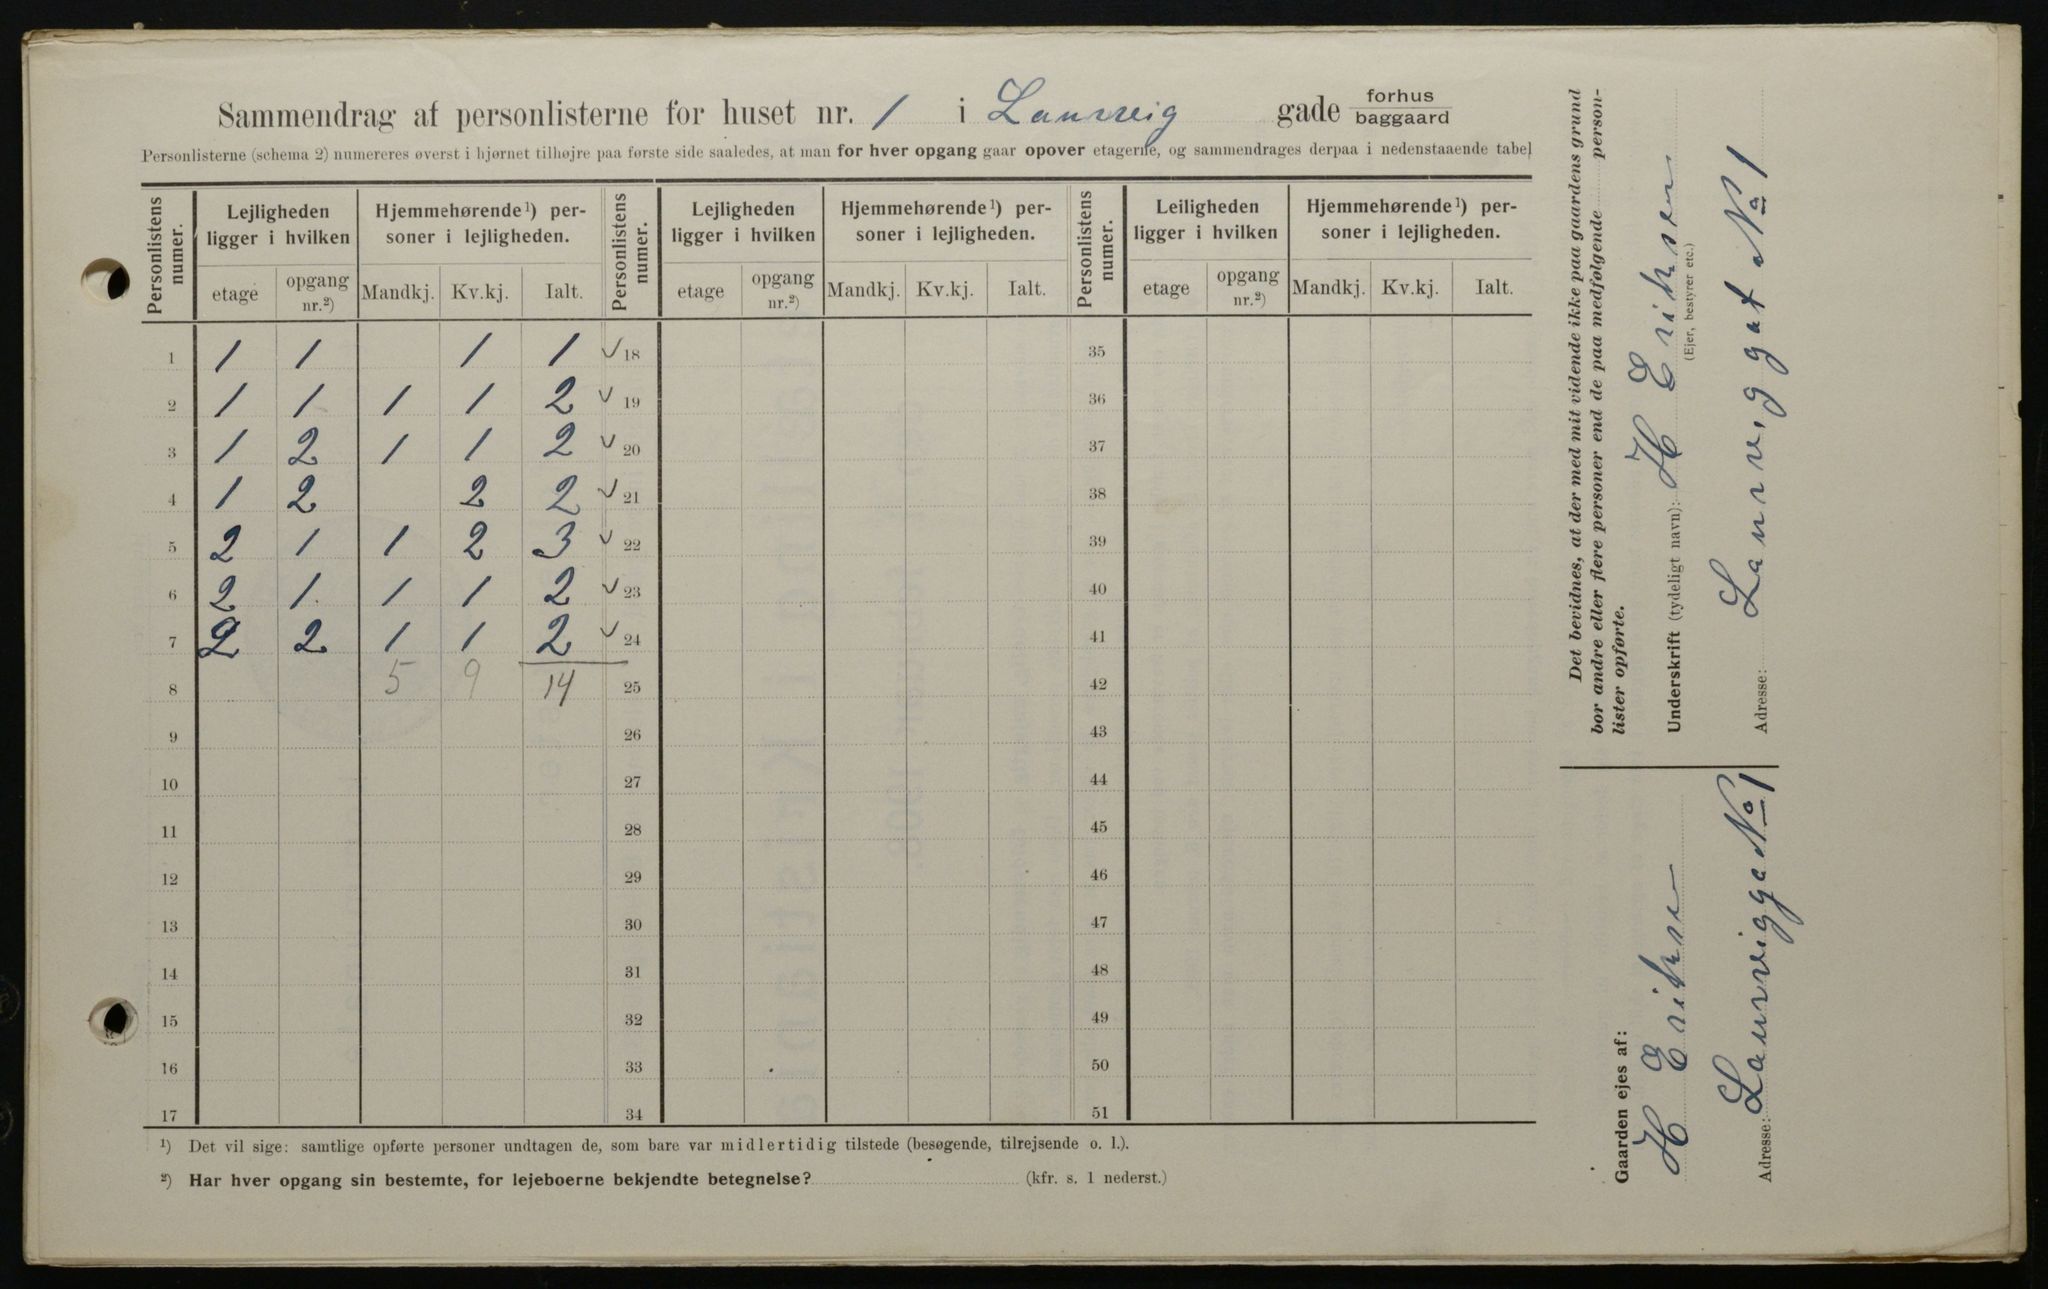 Sammendrag af personlisterne for huset nr. 1 i Laurveig gade forhus
baggaard
Personlisterne (schema 2) numereres øverst i hjørnet tilhøjre paa første side saaledes, at man for hver opgang gaar opover etagerne, og sammendrages derpaa i nedenstaaende tabel
Personlistens numer. Lejligheden ligger i hvilken Hjemmehørende¹) personer i lejligheden. Personlistens numer. Lejligheden ligger i hvilken Hjemmehørende¹) personer i lejligheden. Personlistens numer. Leiligheden ligger i hvilken Hjemmehørende¹) personer i lejligheden.
etage opgang nr.²) Mandkj. Kv.kj. Ialt. etage opgang nr.²) Mandkj. Kv.kj. Ialt. etage opgang nr.²) Mandkj. Kv.kj. Ialt.
1 1 1 1 1 ✓ 18 35
2 1 1 1 1 2 ✓ 19 36
3 1 2 1 1 2 ✓ 20 37
4 1 2 2 2 ✓ 21 38
5 2 1 1 2 3 ✓ 22 39
6 2 1 1 1 2 ✓ 23 40
7 2 2 1 1 2 ✓ 24 41
8 5 9 14 25 42
9 26 43
10 27 44
11 28 45
12 29 46
13 30 47
14 31 48
15 32 49
16 33 50
17 34 51
¹) Det vil sige: samtlige opførte personer undtagen de, som bare var midlertidig tilstede (besøgende, tilrejsende o. l.).
²) Har hver opgang sin bestemte, for lejeboerne bekjendte betegnelse? (kfr. s. 1 nederst.)
Det bevidnes, at der med mit vidende ikke paa gaardens grund
bor andre eller flere personer end de paa medfølgende person-
lister opførte.
Underskrift (tydeligt navn): H Eriksen
(Ejer, bestyrer etc.)
Adresse: Laurviggat No 1
Gaarden ejes af:
H Eriksen
Adresse: Laurvigga No 1